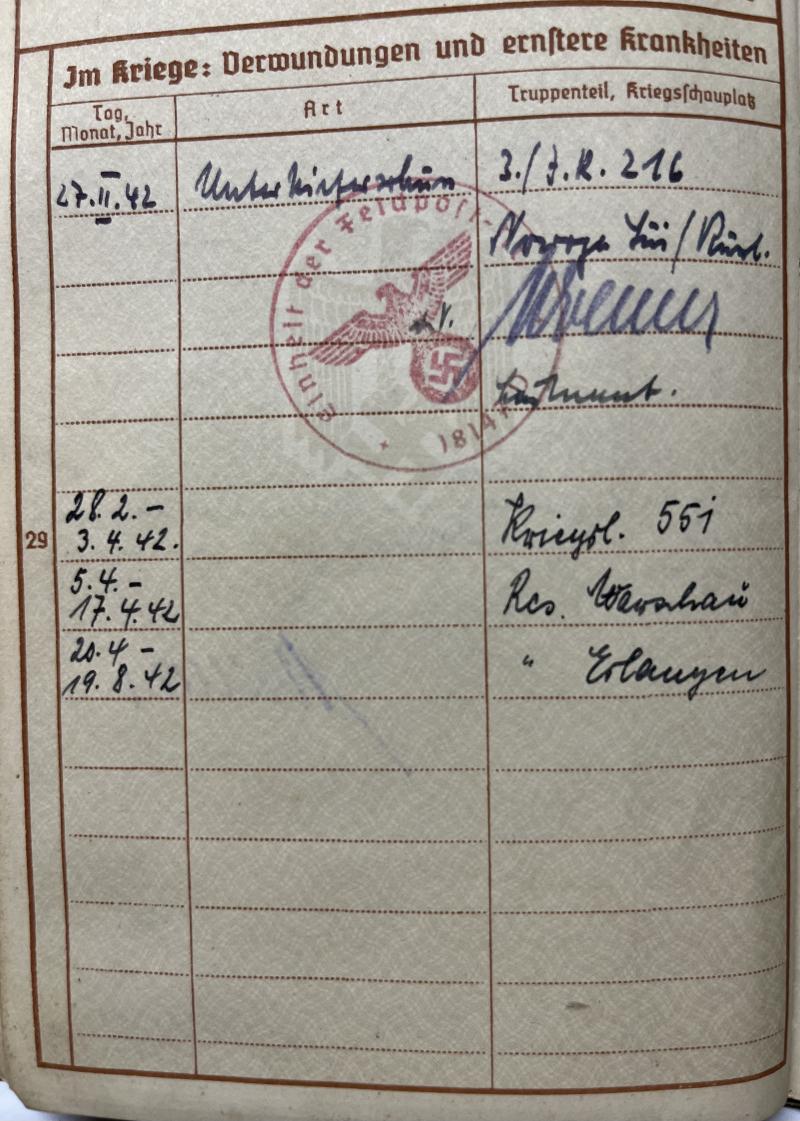 Im Kriege: Verwundungen und ernstere Krankheiten
Tag, Monat, Jahr
Art
Truppenteil, Kriegsschauplatz
27.II.42
3./J.R. 216
Einheit der Feldpost-
28. 2. –
3. 4. 42.
Kriegsl. 551
29
5. 4. –
17. 4. 42
Res. Warschau
20. 4 –
19. 8. 42
" Erlangen